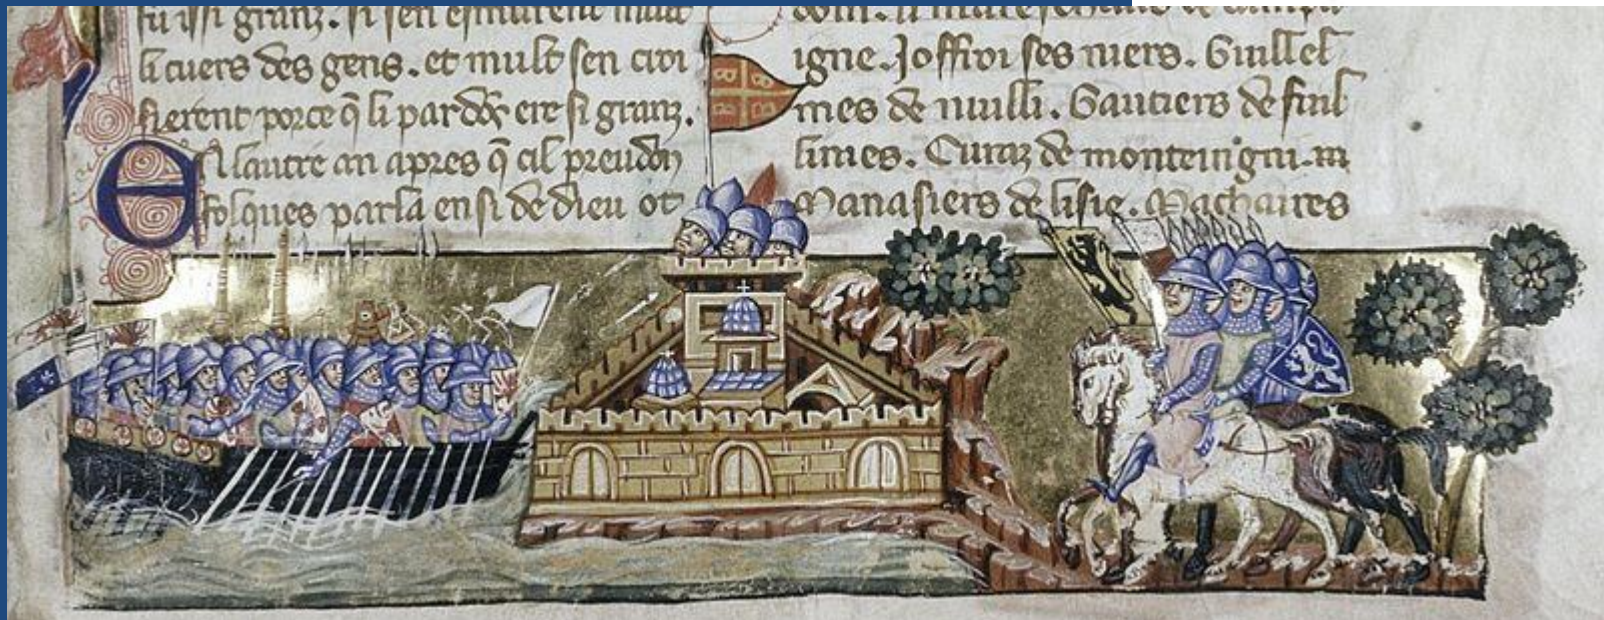 fu issi granz. si sen esmurent mult
li cuers des gens. et mult sen croi
sierent porce q̃ li pardõs ere si granz.
En lautre an apres q̃ cil preudon
folques parla ensi de dieu ot
dom. li mareschaus de campa
igne. Joffroi ses niers. Guillel
mes de nuilli. Gautiers de fuil
limes. Euraz de monteingni. m
Manasiers de lisle. Machaires